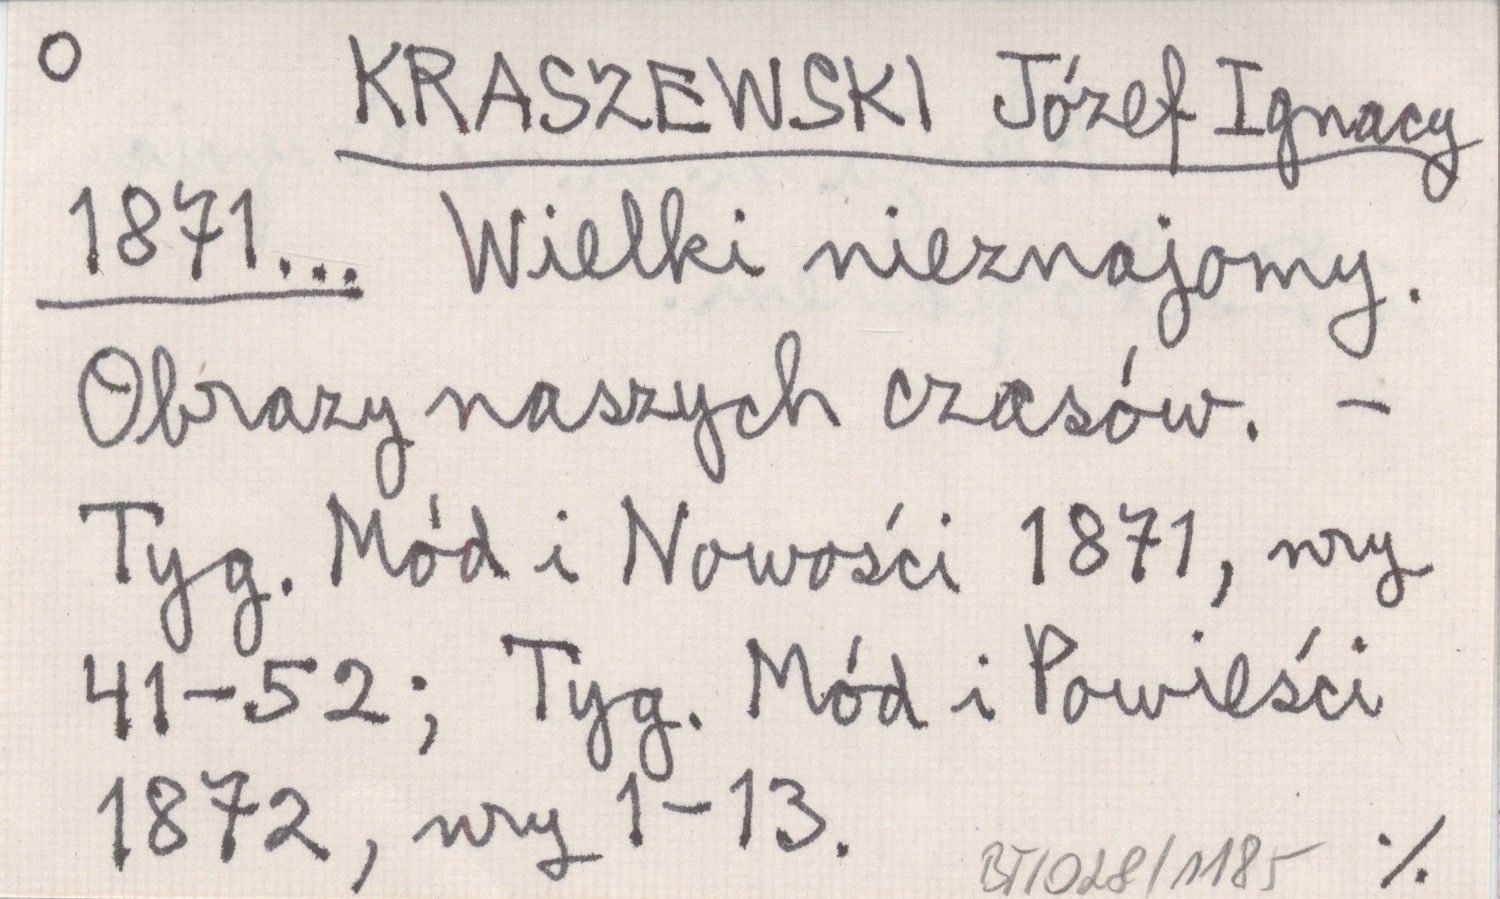 O KRASZEWSKI Józef Ignacy
1871... Wielki nieznajomy.
Obrazy naszych czasów. –
Tyg. Mód i Nowości 1871, nry
41–52; Tyg. Mód i Powieści
1872, nry 1–13.
BT/028/1185 ./.